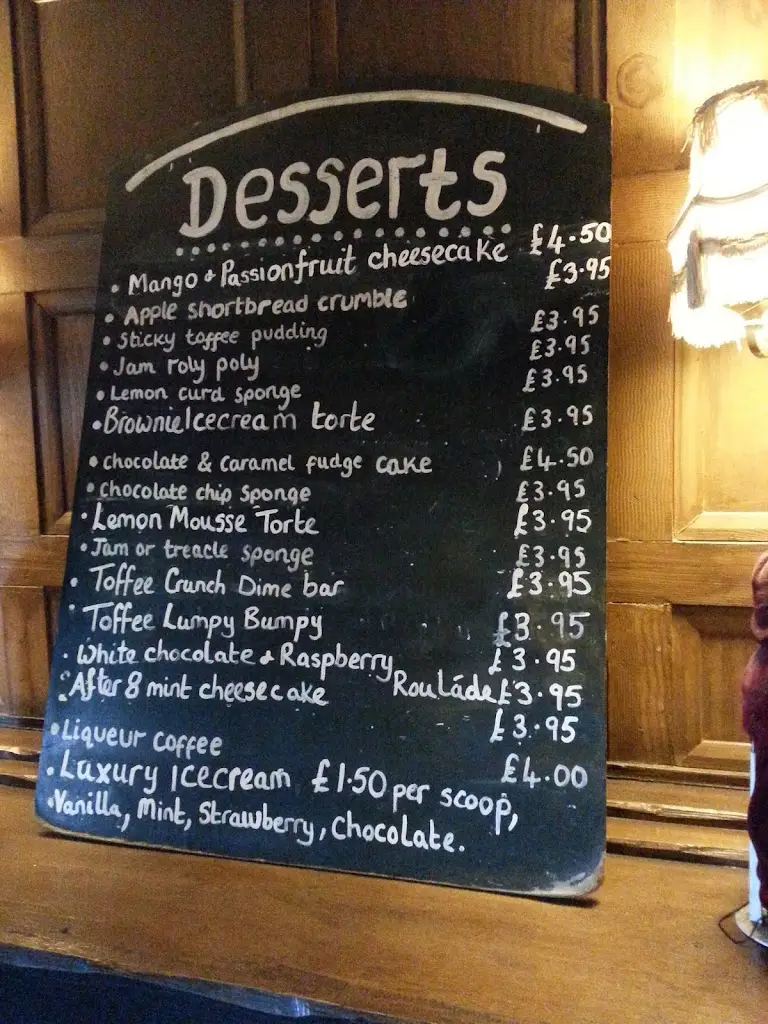 Desserts
• Mango & Passionfruit cheesecake £4.50
• Apple shortbread crumble £3.95
• Sticky toffee pudding £3.95
• Jam roly poly £3.95
• Lemon curd sponge £3.95
• Brownie Icecream torte £3.95
• chocolate & caramel fudge cake £4.50
• chocolate chip sponge £3.95
• Lemon Mousse Torte £3.95
• Jam or treacle sponge £3.95
• Toffee Crunch Dime bar £3.95
• Toffee Lumpy Bumpy £3.95
• White chocolate & Raspberry £3.95
• After 8 mint cheesecake Rouláde £3.95
£3.95
• Liqueur coffee £4.00
• Luxury Icecream £1.50 per scoop,
• Vanilla, Mint, Strawberry, Chocolate.